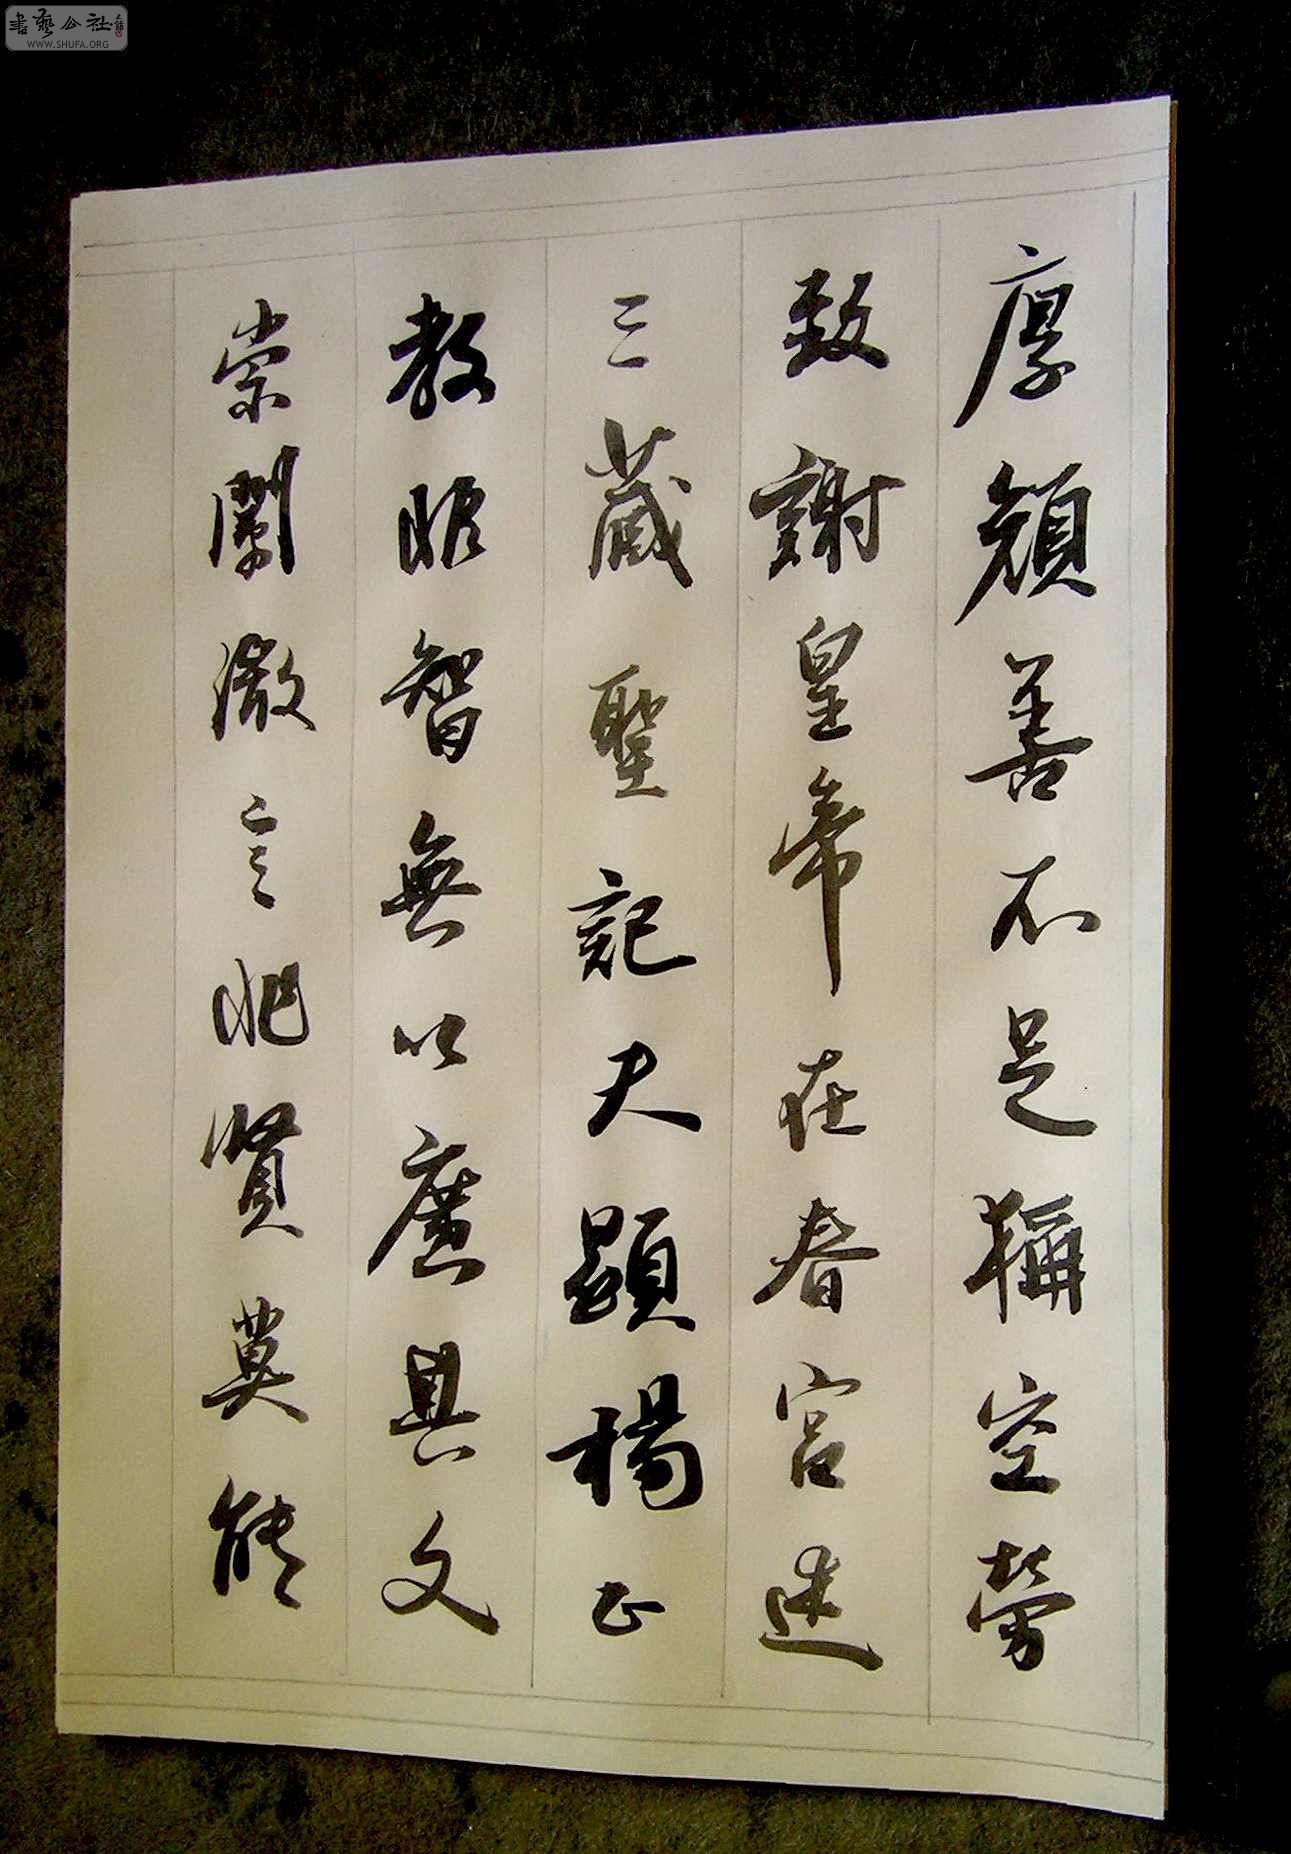 厚顏善不足稱空勞
致謝皇帝在春宮述
三藏聖記夫顯楊正
教非智無以廣其文
崇闡微言非賢莫能
書藝公社
WWW.SHUFA.ORG